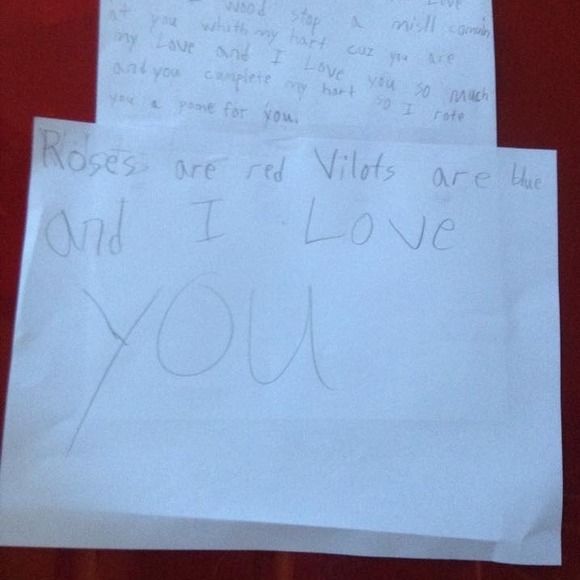 Love
wood stop a misll comain
at you whith my hart cuz you are
my Love and I Love you so much
and you camplete my hart so I rote
you a pome for you.
Roses are red Vilots are blue
and I Love
you